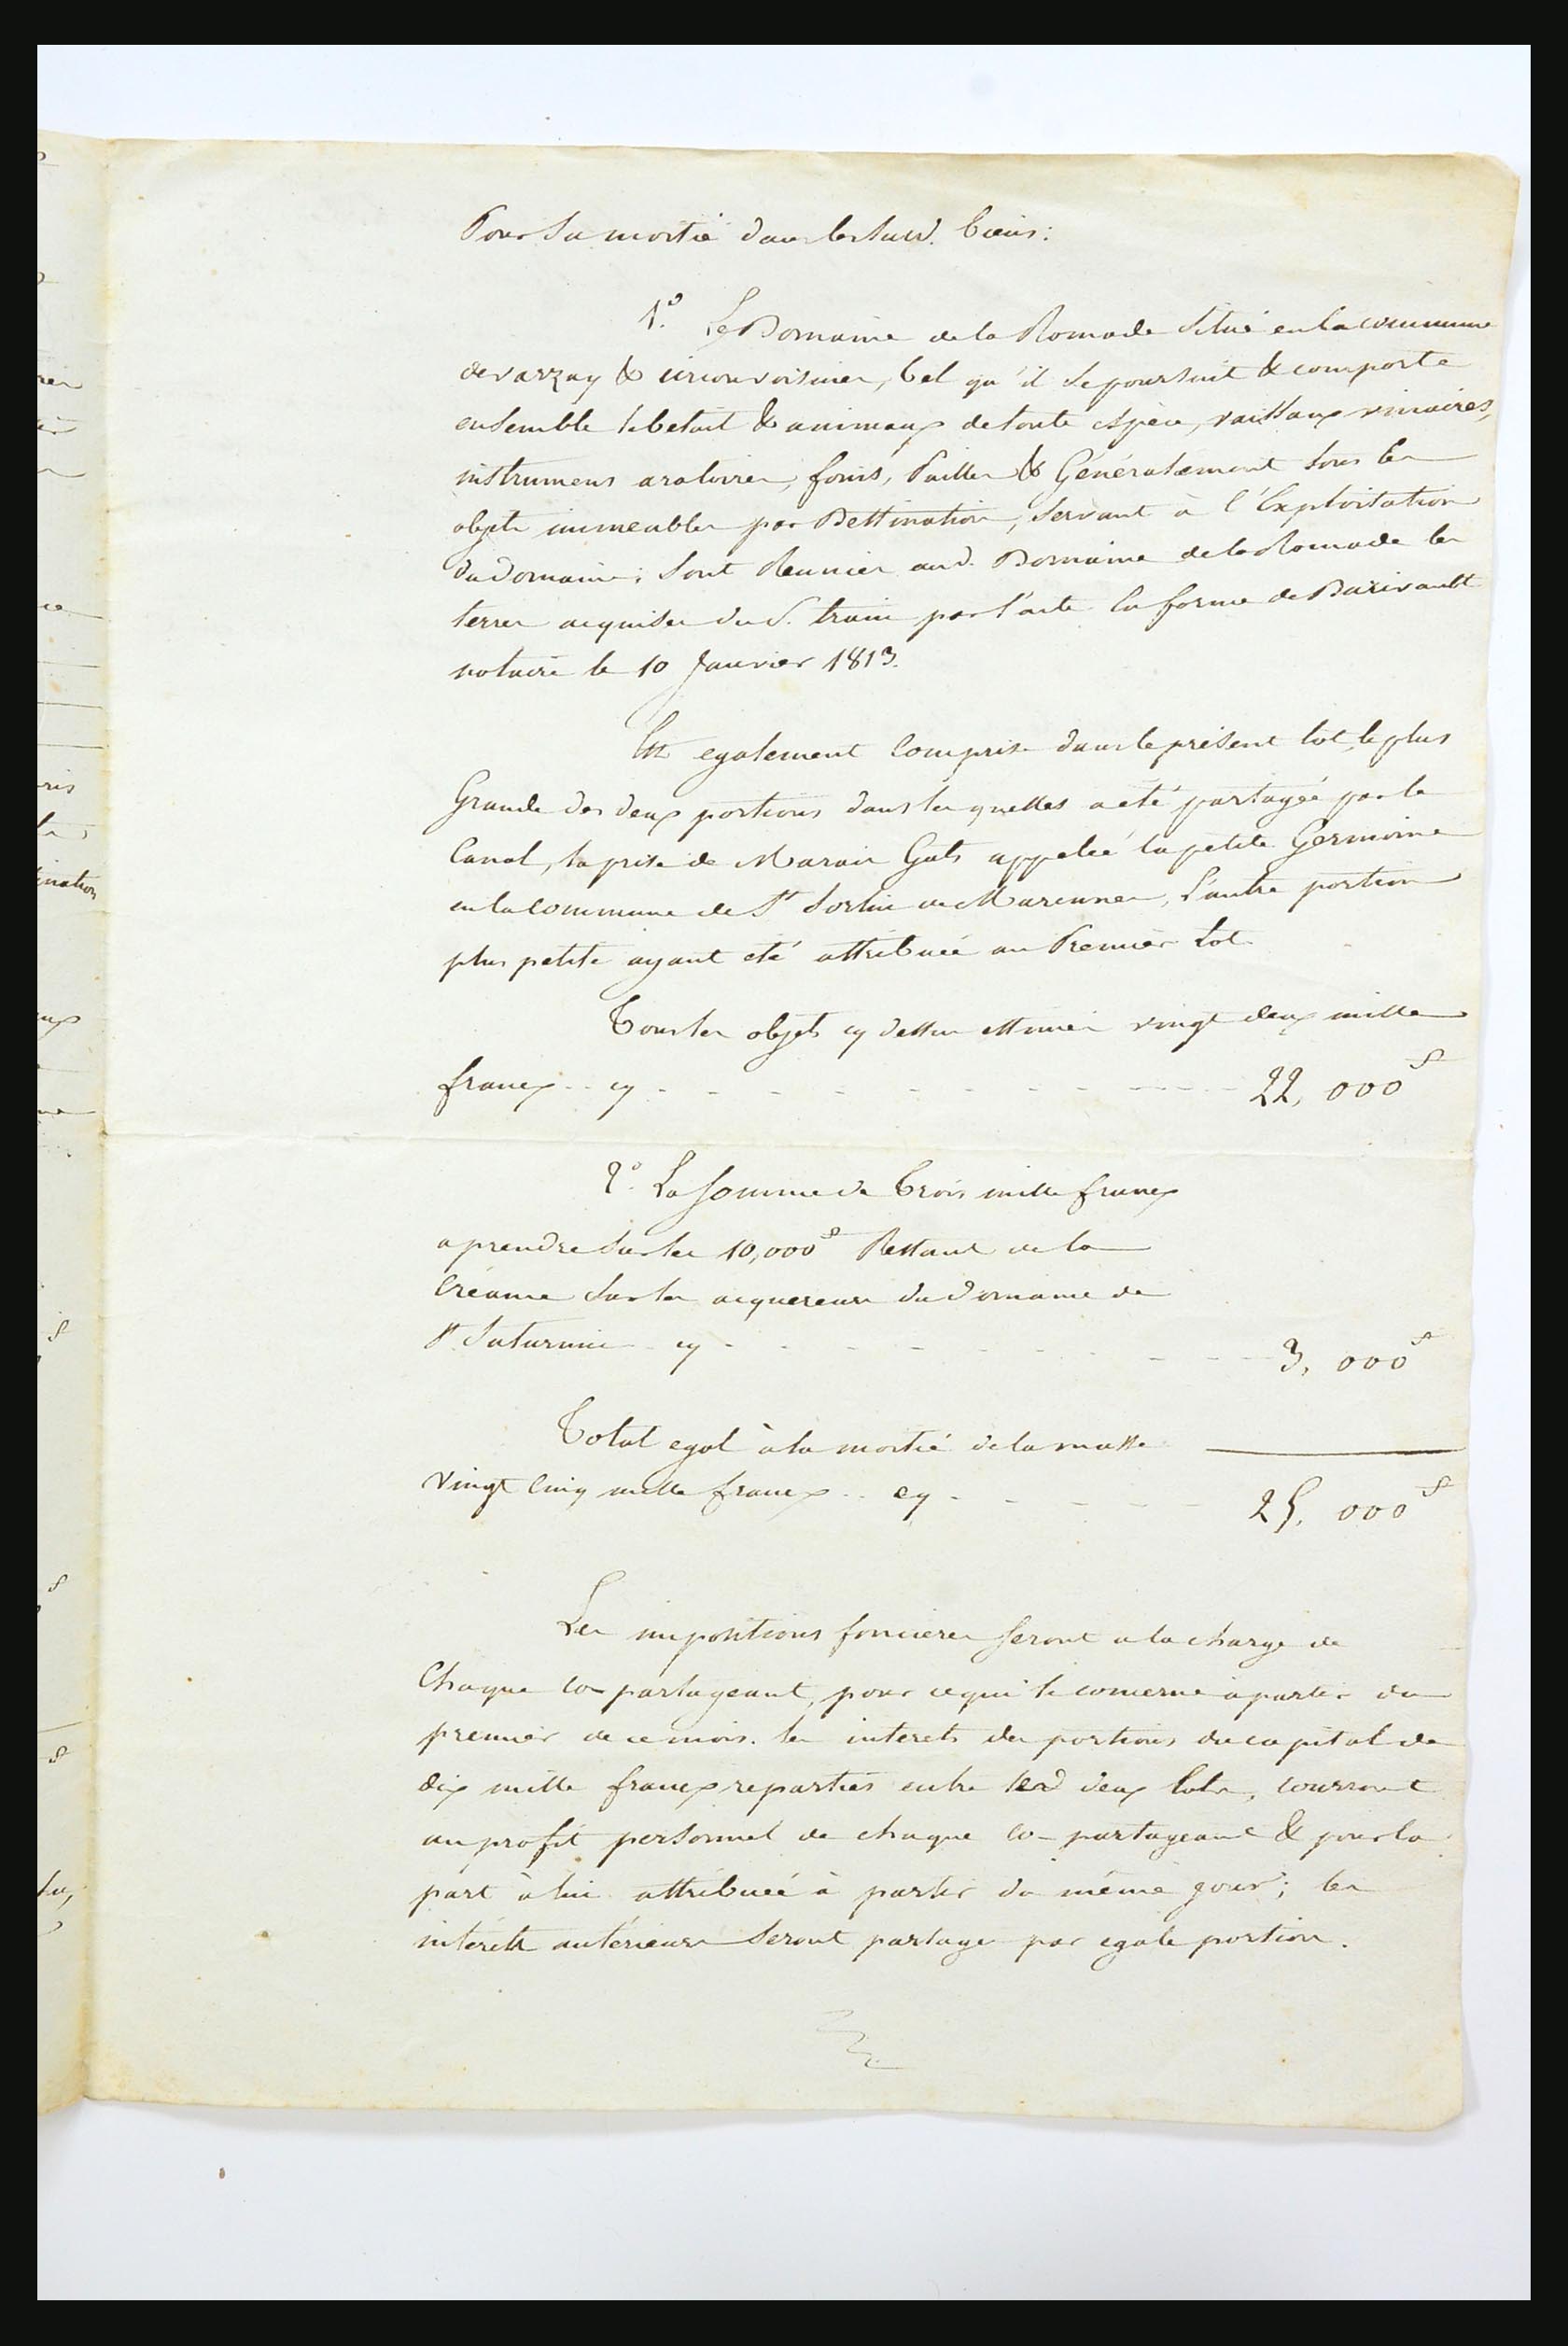 Pour sa moitié dans les susd. biens:
1.° Le Domaine de la Romade situé en la commune
de varzay & circonvoisines, tel qu'il se poursuit & comporte
ensemble le betail & animaux de toute espèce, vaissaux vinaires,
instrumens aratoires, foins, Pailles & Généralement tous les
objets immeubles par Destination, servant à l'Exploitation
du domaine; sont Reunies aud. Domaine de la Romade les
terres acquises du S. train par l'acte en forme de
notaire le 10 Janvier 1813.
Est egalement comprise dans le présent lot, la plus
Grande des deux portions dans les quelles a été partagée par le
Canal, la prise de Marais Gats appelée la petite Germaine
en la commune de St Sorlin de Marennes, L'autre portion
plus petite ayant été attribuée au Premier Lot.
Tous les objets cy dessus estimés vingt deux mille
francs .. cy - - - - - - - - - 22,000f
2.° La somme de Trois mille francs
a prendre sur les 10,000f Restant de la
Créance sur les acquereurs du domaine de
St Saturnin cy - - - - - - - - - 3,000f
Total egal à la moitié de la masse
vingt cinq mille francs .. cy - - - - - 25,000f
Les impositions foncieres seront a la charge de
Chaque co-partageant, pour ce qui le concerne a partir du
premier de ce mois. les interets des portions du capital de
dix mille francs reparties entre lesd deux lots, courront
au profit personnel de chaque co-partageant & pour la
part à lui attribuée à partir du même jour; les
intérêts antérieurs seront partagé par egale portion.
ris
ination